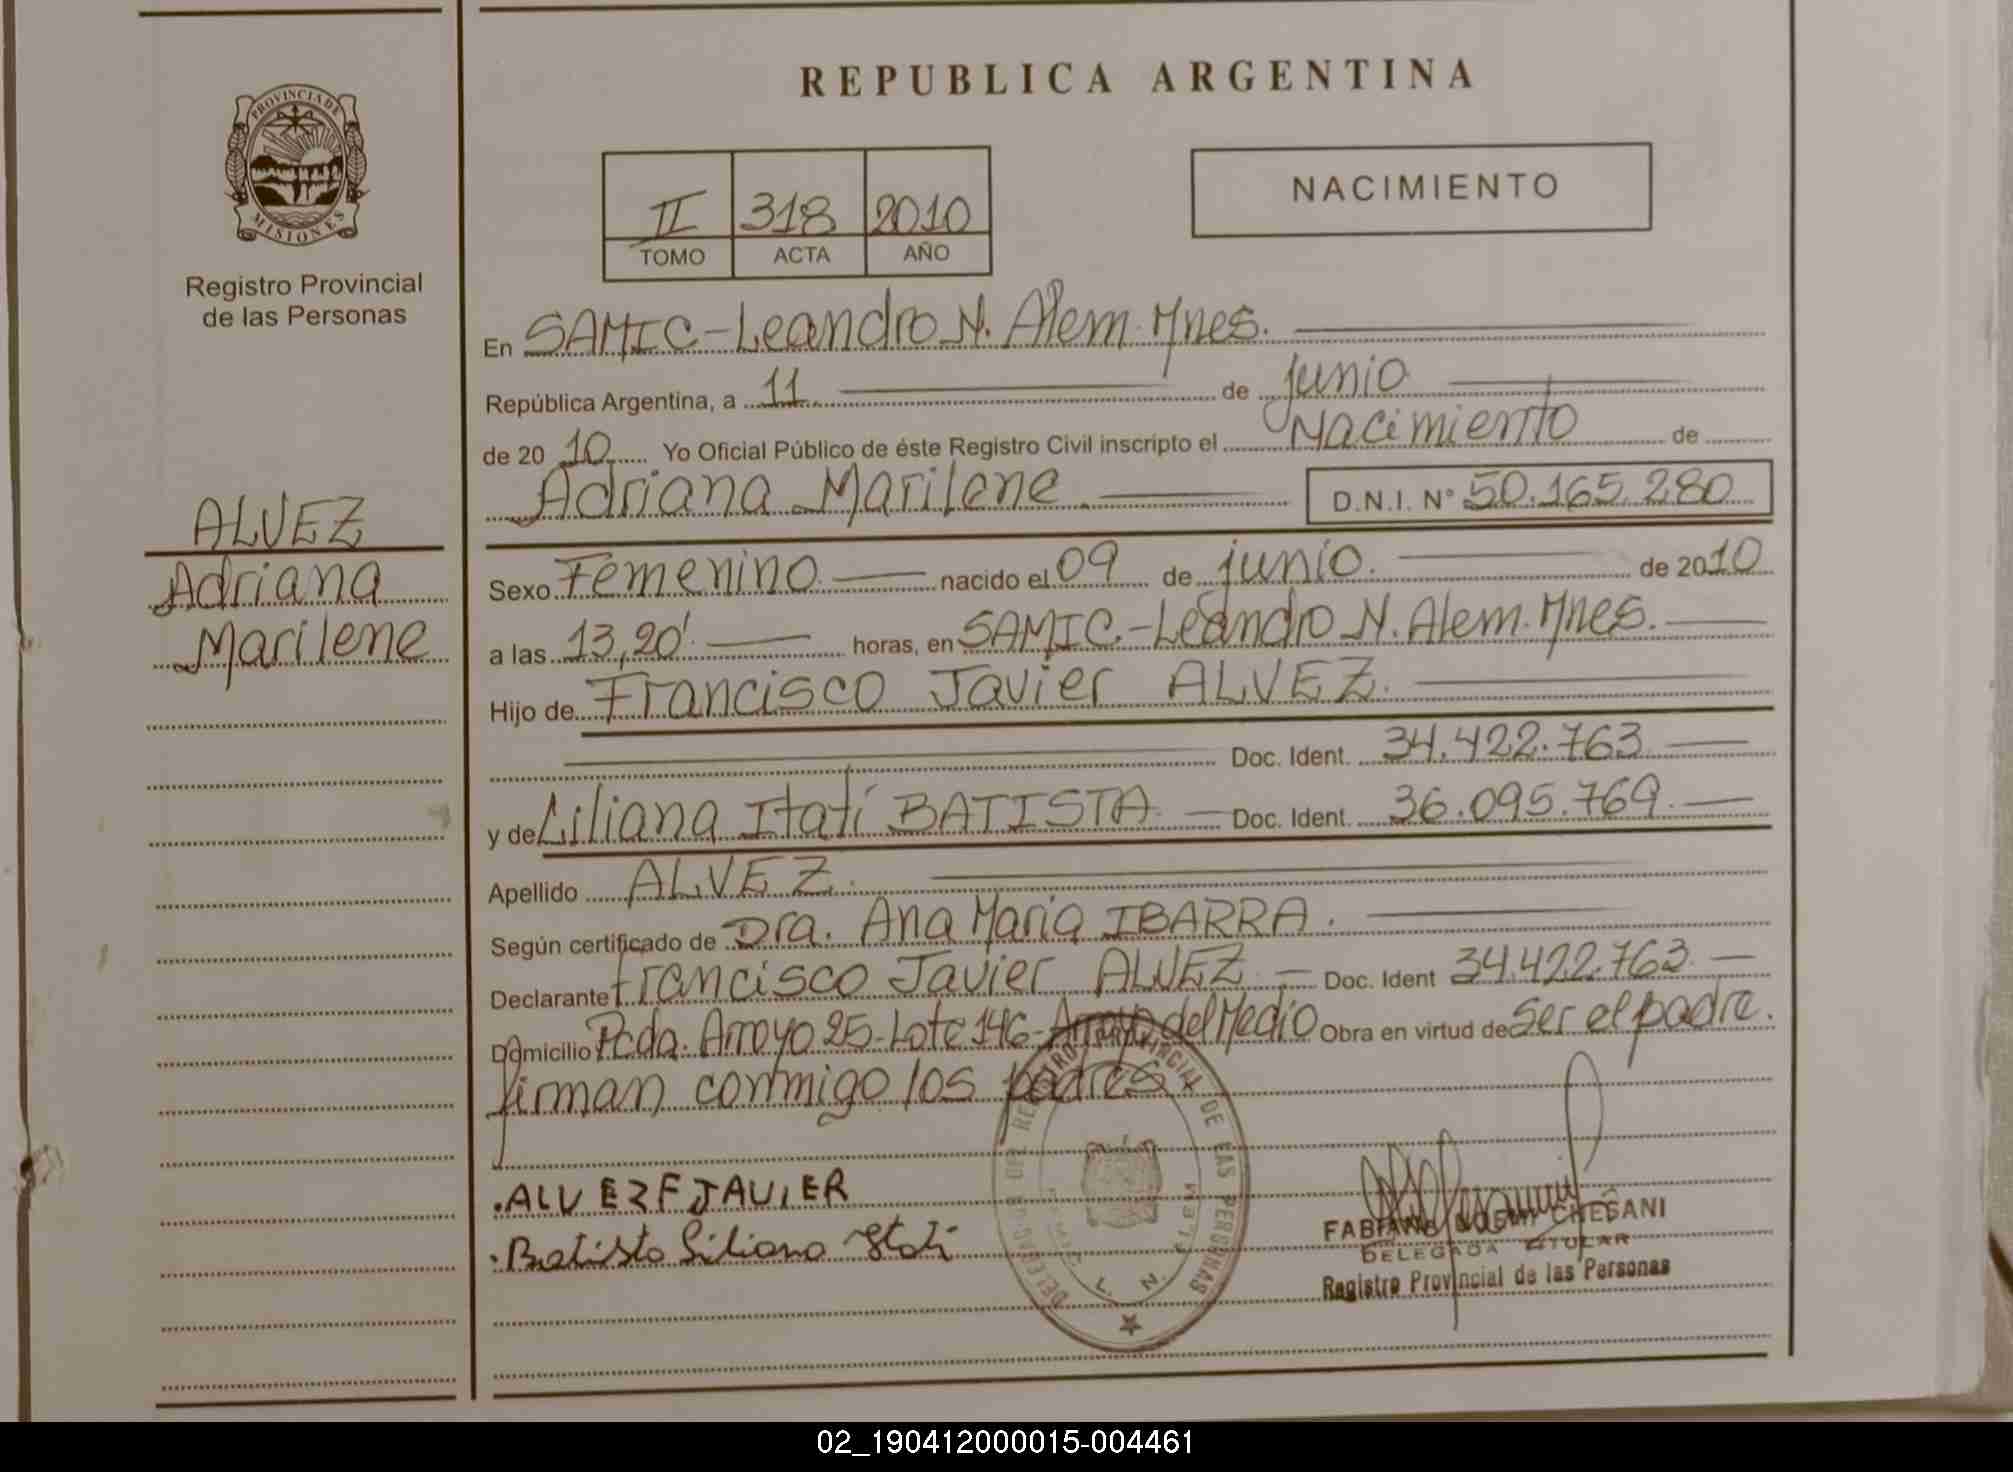 REPUBLICA ARGENTINA
PROVINCIA DE
MISIONES
Registro Provincial
de las Personas
II 318 2010
TOMO ACTA AÑO
NACIMIENTO
En SAMIC-Leandro N. Alem. Mnes.
República Argentina, a 11 de junio
de 20 10 Yo Oficial Público de éste Registro Civil inscripto el Nacimiento de
Adriana Marilene. D.N.I. N° 50.165.280
ALVEZ
Adriana
Marilene
Sexo Femenino. nacido el 09 de junio. de 2010
a las 13,20'. horas, en SAMIC.-Leandro N. Alem. Mnes.
Hijo de Francisco Javier ALVEZ.
Doc. Ident. 34.422.763
y de Liliana Itatí BATISTA Doc. Ident. 36.095.769.
Apellido ALVEZ.
Según certificado de Dra. Ana Maria IBARRA.
Declarante Francisco Javier ALVEZ Doc. Ident 34.422.763.
Domicilio Pcda. Arroyo 25-Lote 146-Arroyo del Medio Obra en virtud de Ser el padre.
firman conmigo los padres
.ALVEZ F JAVIER
.Batista Liliana Itati
REGISTRO PROVINCIAL DE LAS PERSONAS
L. N.
DELEGADA TITULAR
Registro Provincial de las Personas
02_190412000015-004461